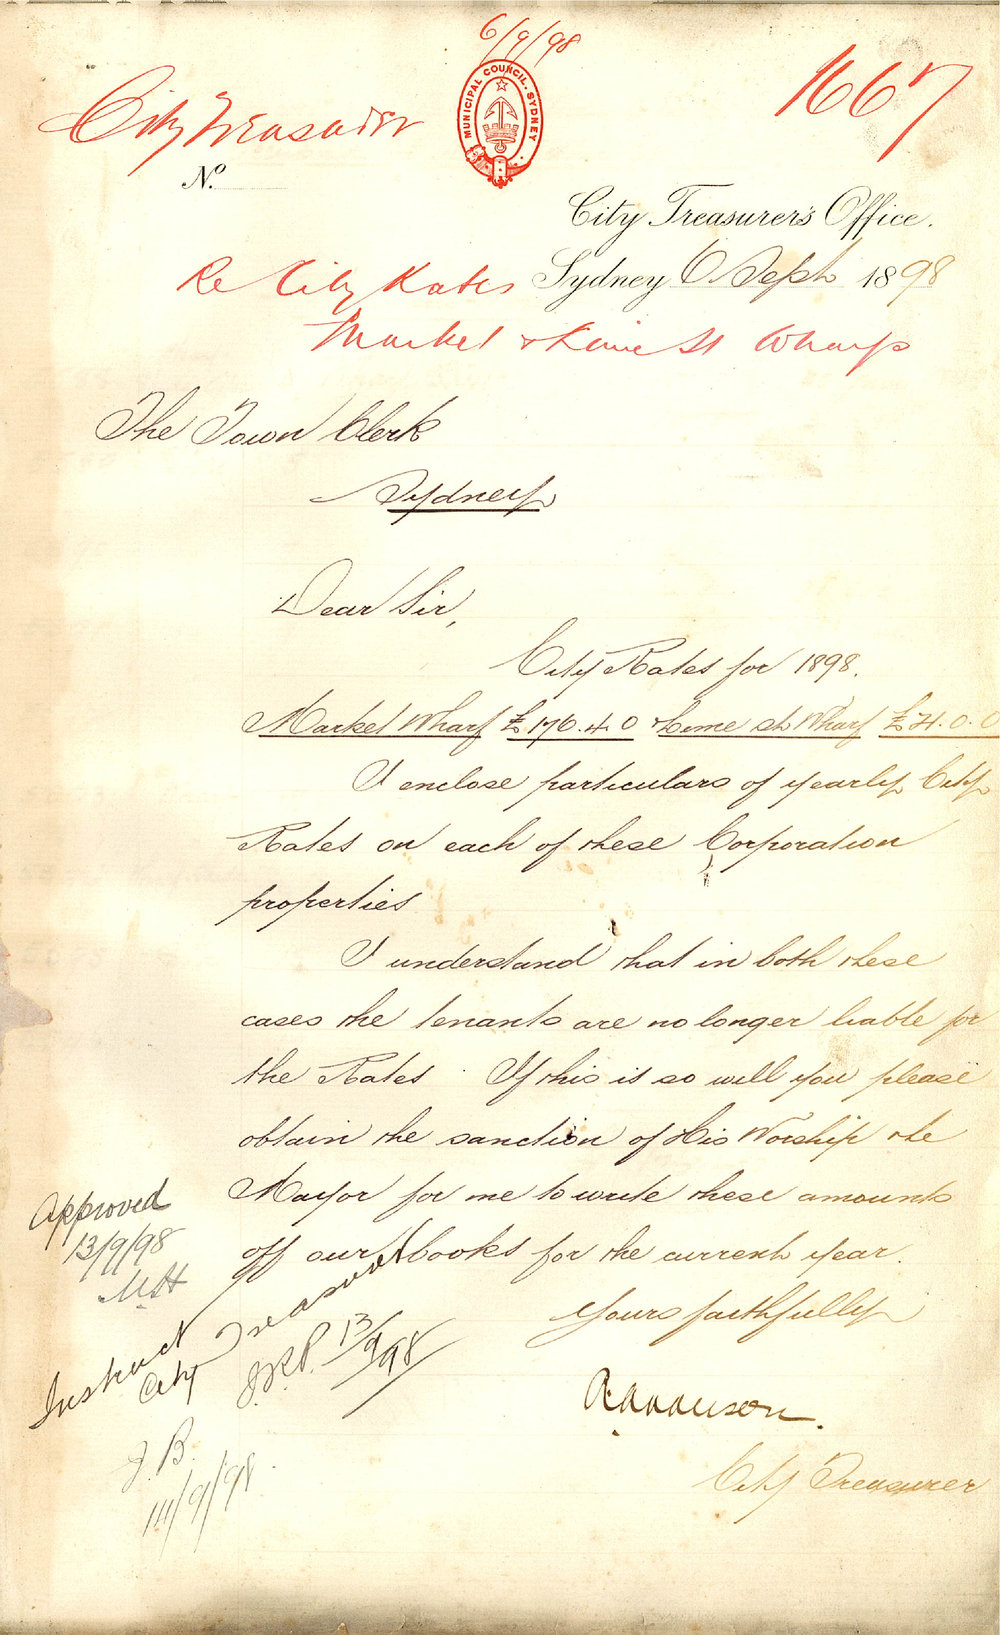 6/9/98
MUNICIPAL COUNCIL. SYDNEY
1667
City Treasurer
No.
City Treasurer's Office.
Re City Rates Sydney 6 Sept 1898
Market & Lime St Wharfs
The Town Clerk
Sydney
Dear Sir,
City Rates for 1898.
Market Wharf £176.4.0 Lime St Wharf
I enclose particulars of yearly City
Rates on each of these Corporation
properties
I understand that in both these
cases the tenants are no longer liable for
the Rates. If this is so will you please
obtain the sanction of His Worship the
Mayor for me to write these amounts
off our books for the current year.
Yours faithfully
City Treasurer
Approved
13/9/98
MH
Instruct
City Treasurer
J.R.P. 13/9/98
J.B.
14/9/98.